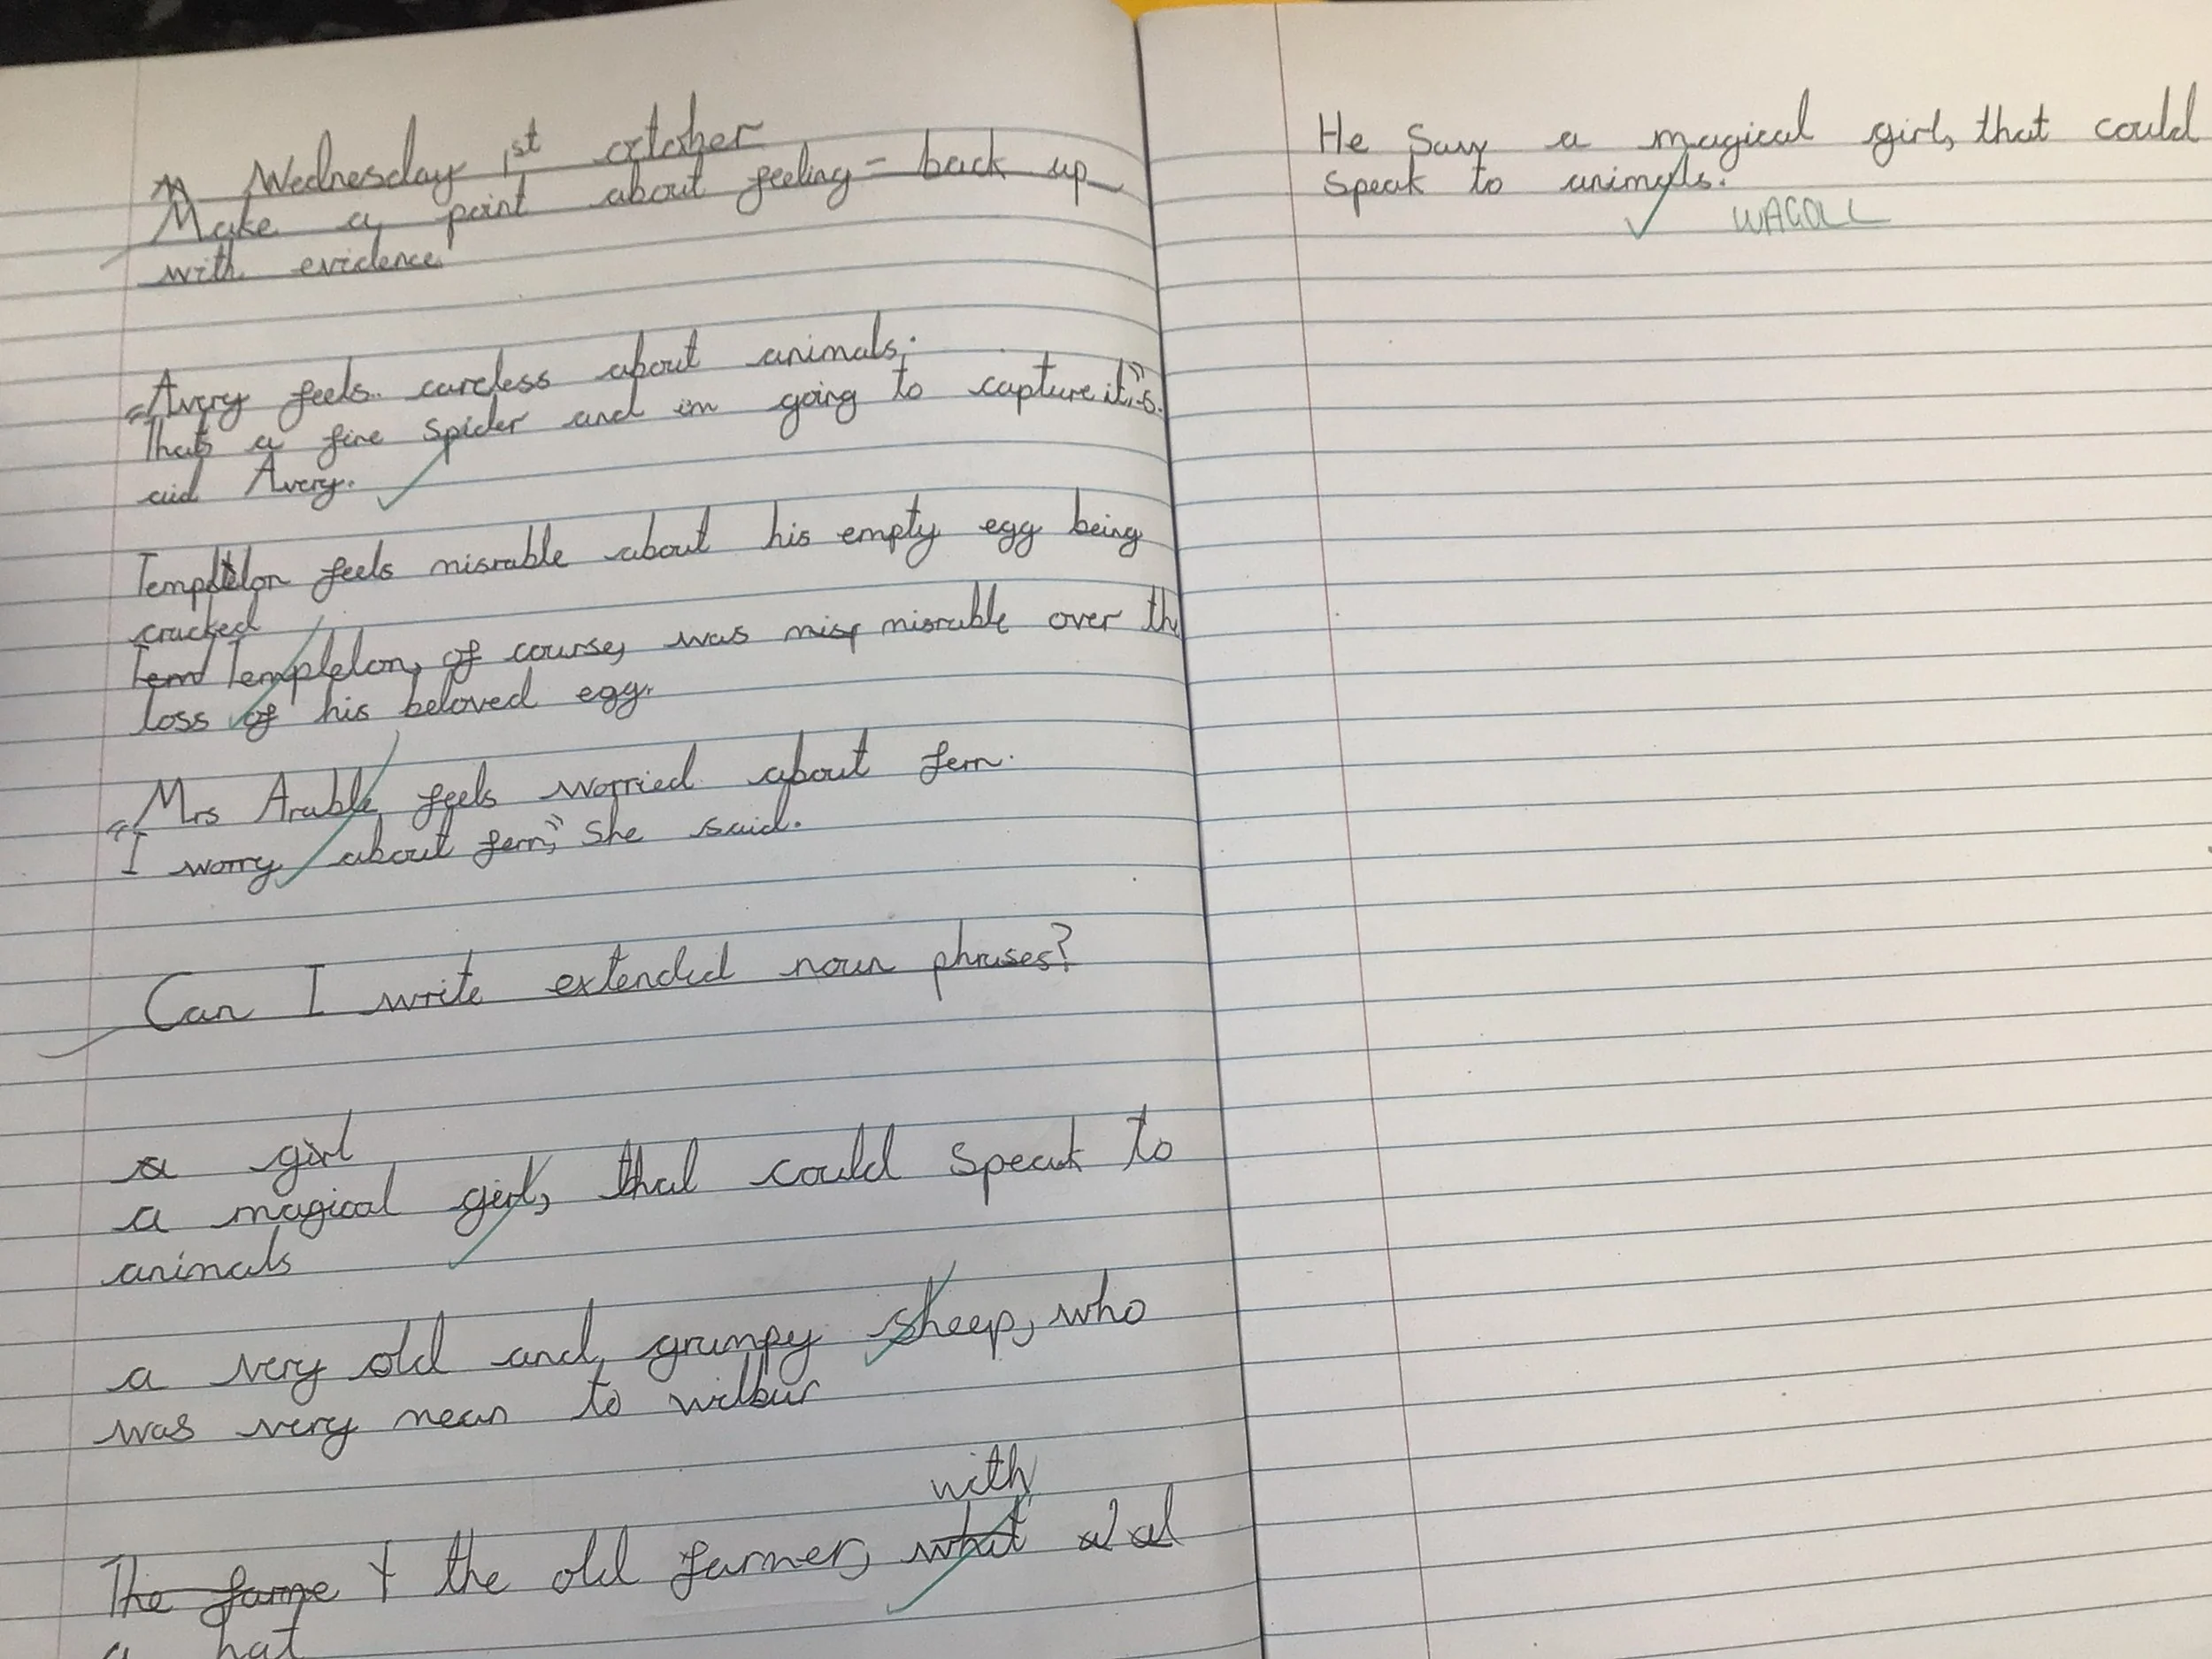 Wednesday 1st october
Make a point about feeling - back up
with evidence
Avery feels careless about animals.
"Thats a fine spider and im going to capture it," s
aid Avery.
Templeton feels misrable about his empty egg being
cracked
Tem Templeton, of course, was misr misrable over th
loss of his beloved egg.
Mrs Arable feels worried about fern.
"I worry about fern," She said.
Can I write extended noun phrases?
a girl
a magical girl, that could speak to
animals
a very old and grumpy sheep, who
was very mean to wilbur
with
The farme the old farmer, what
a hat
He saw a magical girl, that could
speak to animals.
WAGOLL